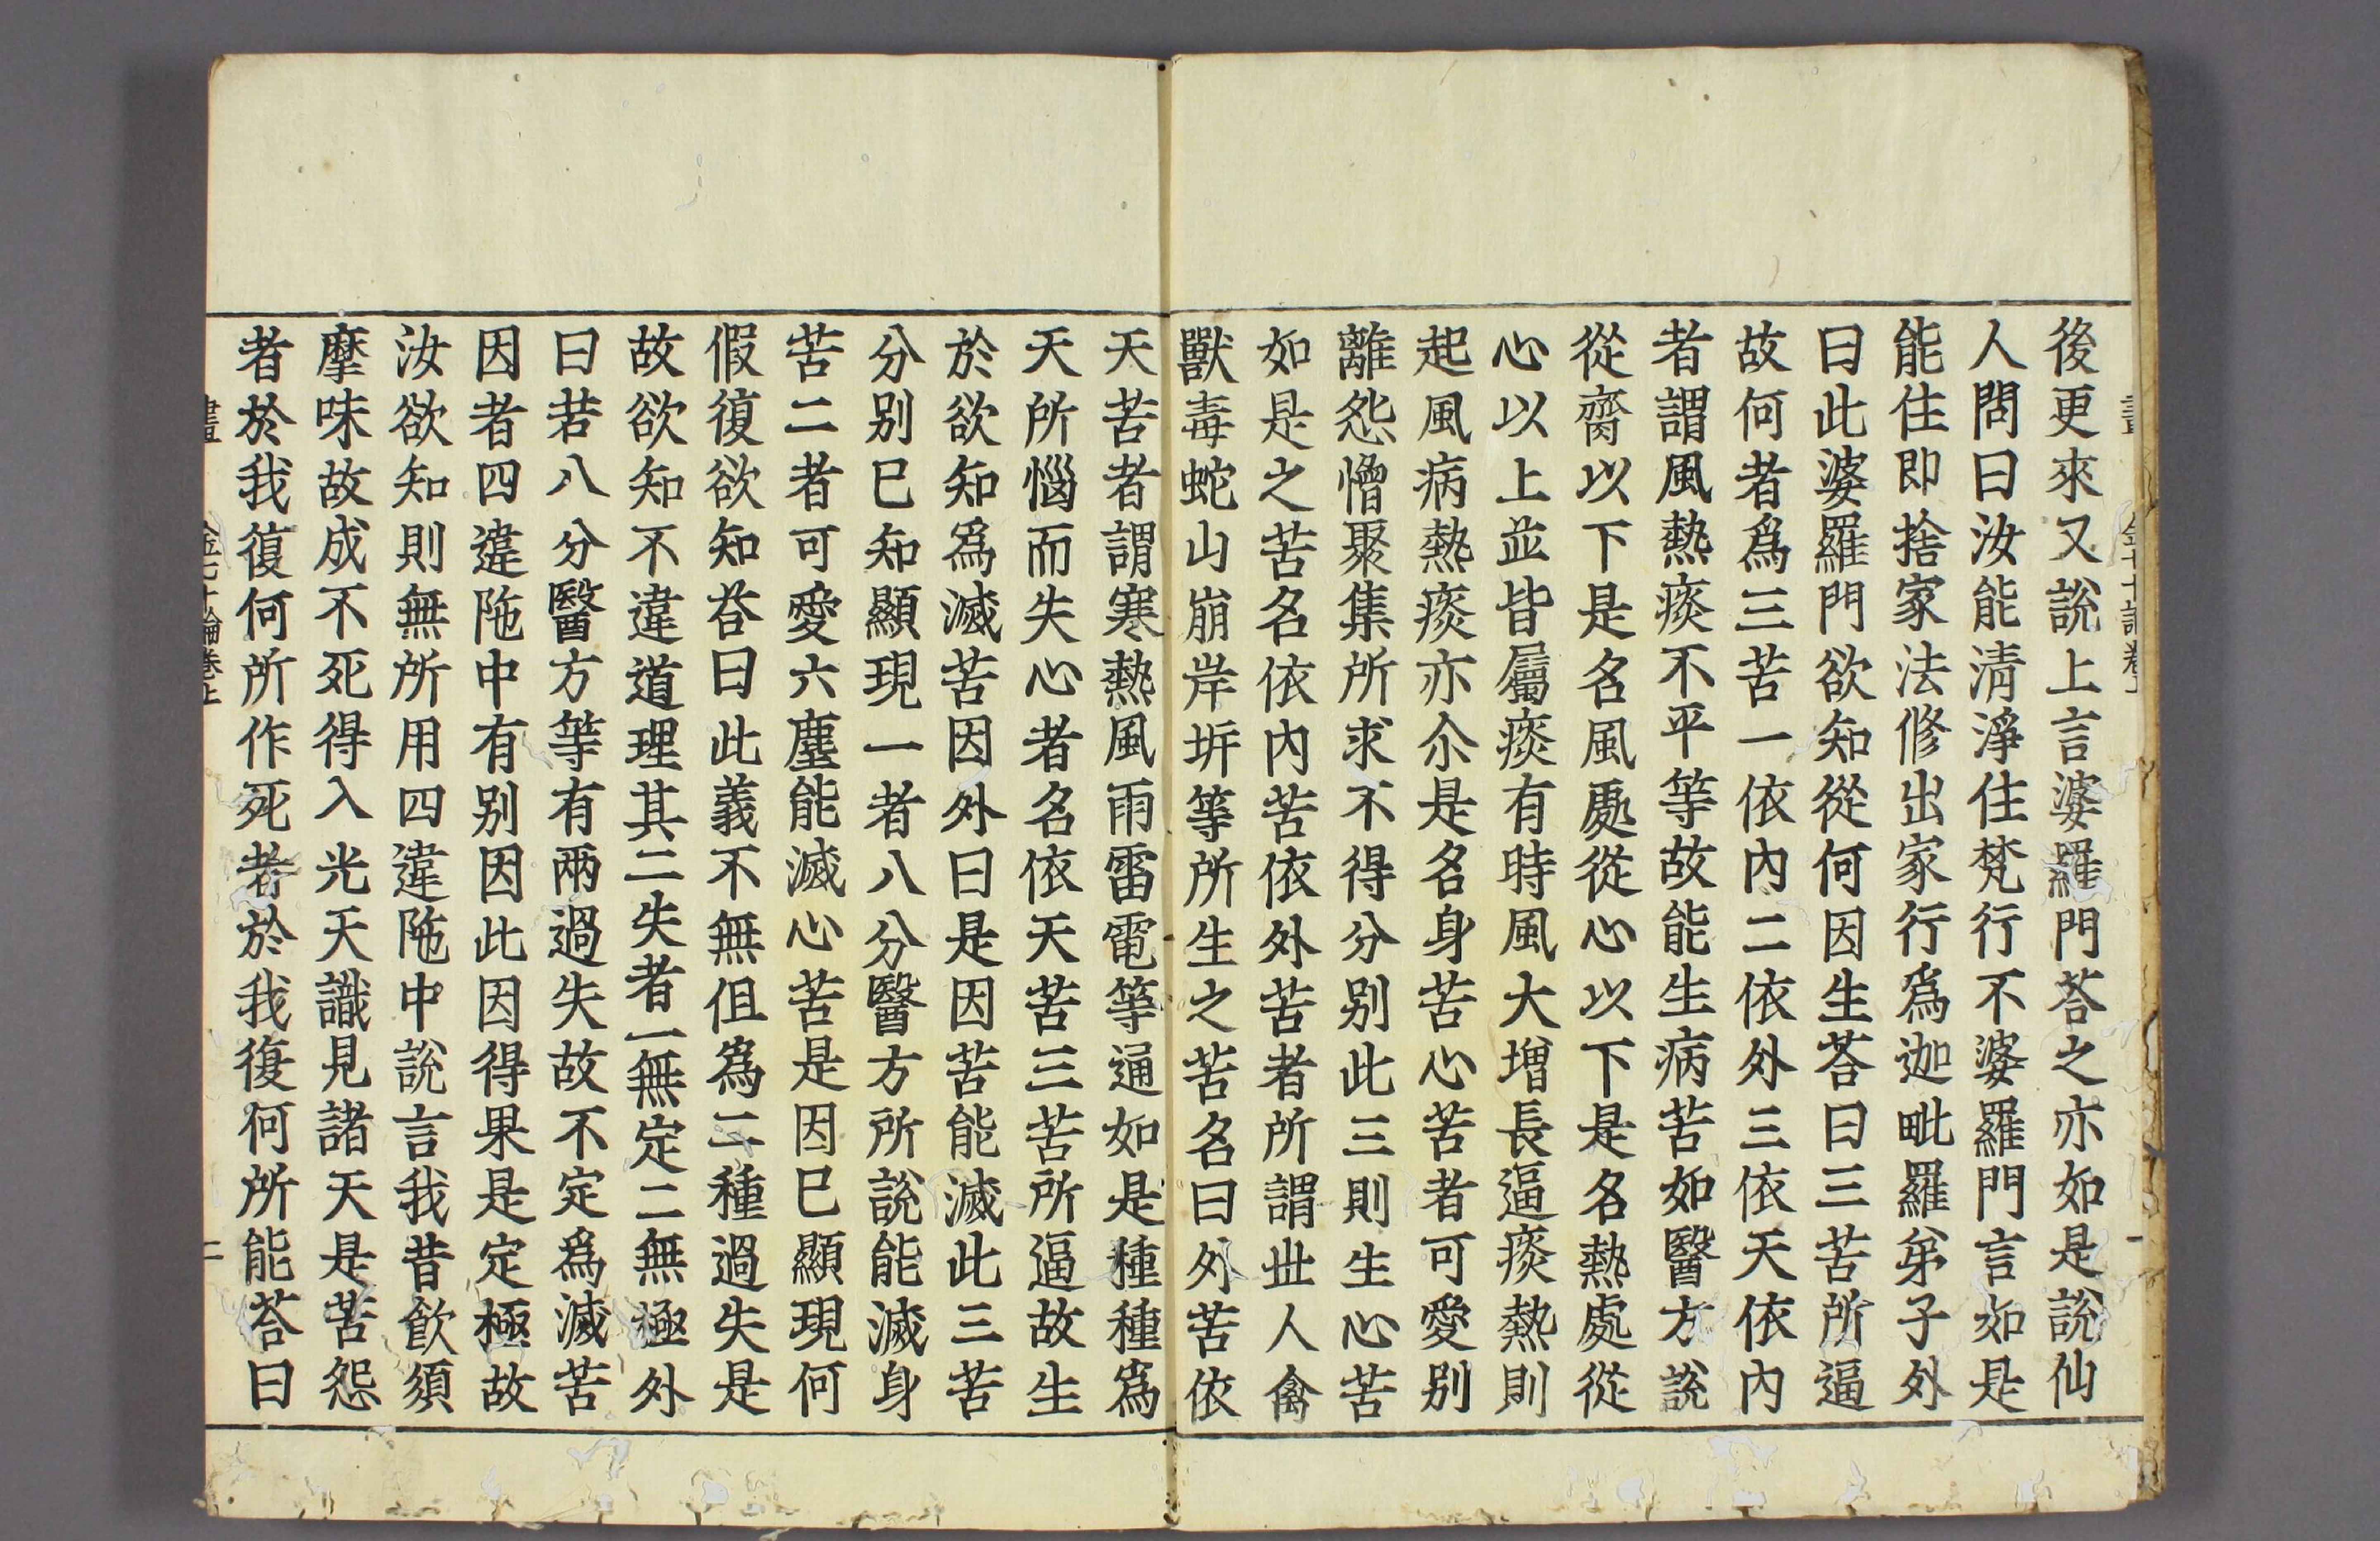 後更來又說上言婆羅門荅之亦如是說仙
人問曰汝能清淨住梵行不婆羅門言如是
能住即捨家法修出家行爲迦毗羅弟子外
曰此婆羅門欲知從何因生荅曰三苦所逼
故何者爲三苦一依內二依外三依天依內
者謂風熱痰不平等故能生病苦如醫方說
從齎以下是名風處從心以下是名熱處從
心以上並皆屬痰有時風大增長逼痰熱則
起風病熱痰亦尒是名身苦心苦者可愛別
離怨憎聚集所求不得分別此三則生心苦
如是之苦名依內苦依外苦者所謂世人禽
獸毒蛇山崩岸坼等所生之苦名曰外苦依
天苦者謂寒熱風雨雷電等通如是種種爲
天所惱而失心者名依天苦三苦所逼故生
於欲知爲滅苦因外曰是因苦能滅此三苦
分別巳知顯現一者八分醫方所說能滅身
苦二者可愛六塵能滅心苦是因巳顯現何
假復欲知荅曰此義不無但爲二種過失是
故欲知不違道理其二失者一無定二無極外
曰若八分醫方等有兩過失故不定爲滅苦
因者四違陁中有別因此因得果是定極故
汝欲知則無所用四違陁中說言我昔飲須
摩味故成不死得入光天識見諸天是苦怨
者於我復何所作死者於我復何所能荅曰
金七十論卷上
二